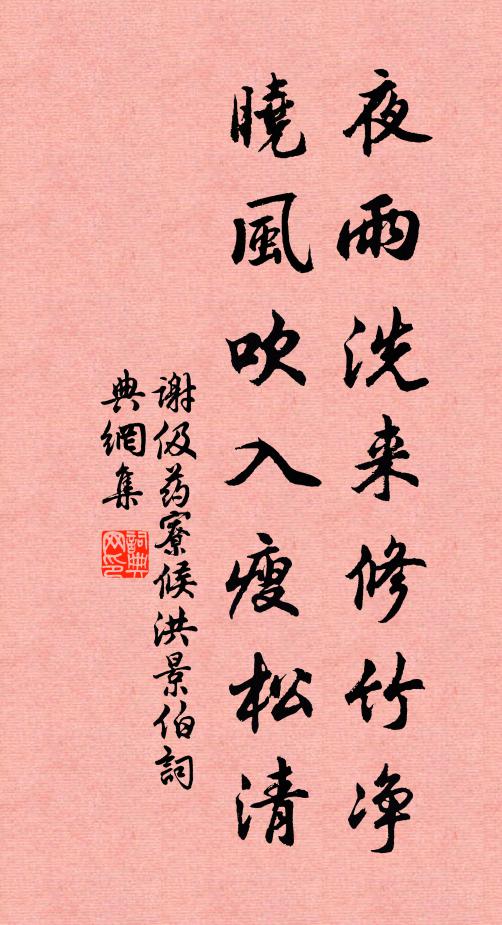 夜雨洗来修竹净
曉風吹入瘦松清
謝伋药寮候洪景伯詞
典網集
詞典
网印